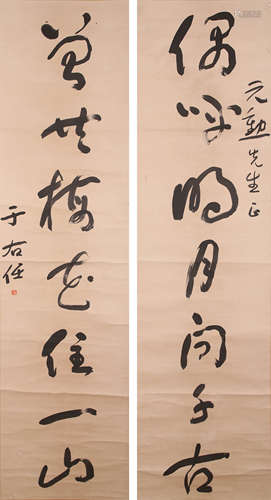 元勳先生正
偶呼明月问千古
曾共梅花住一山
于右任